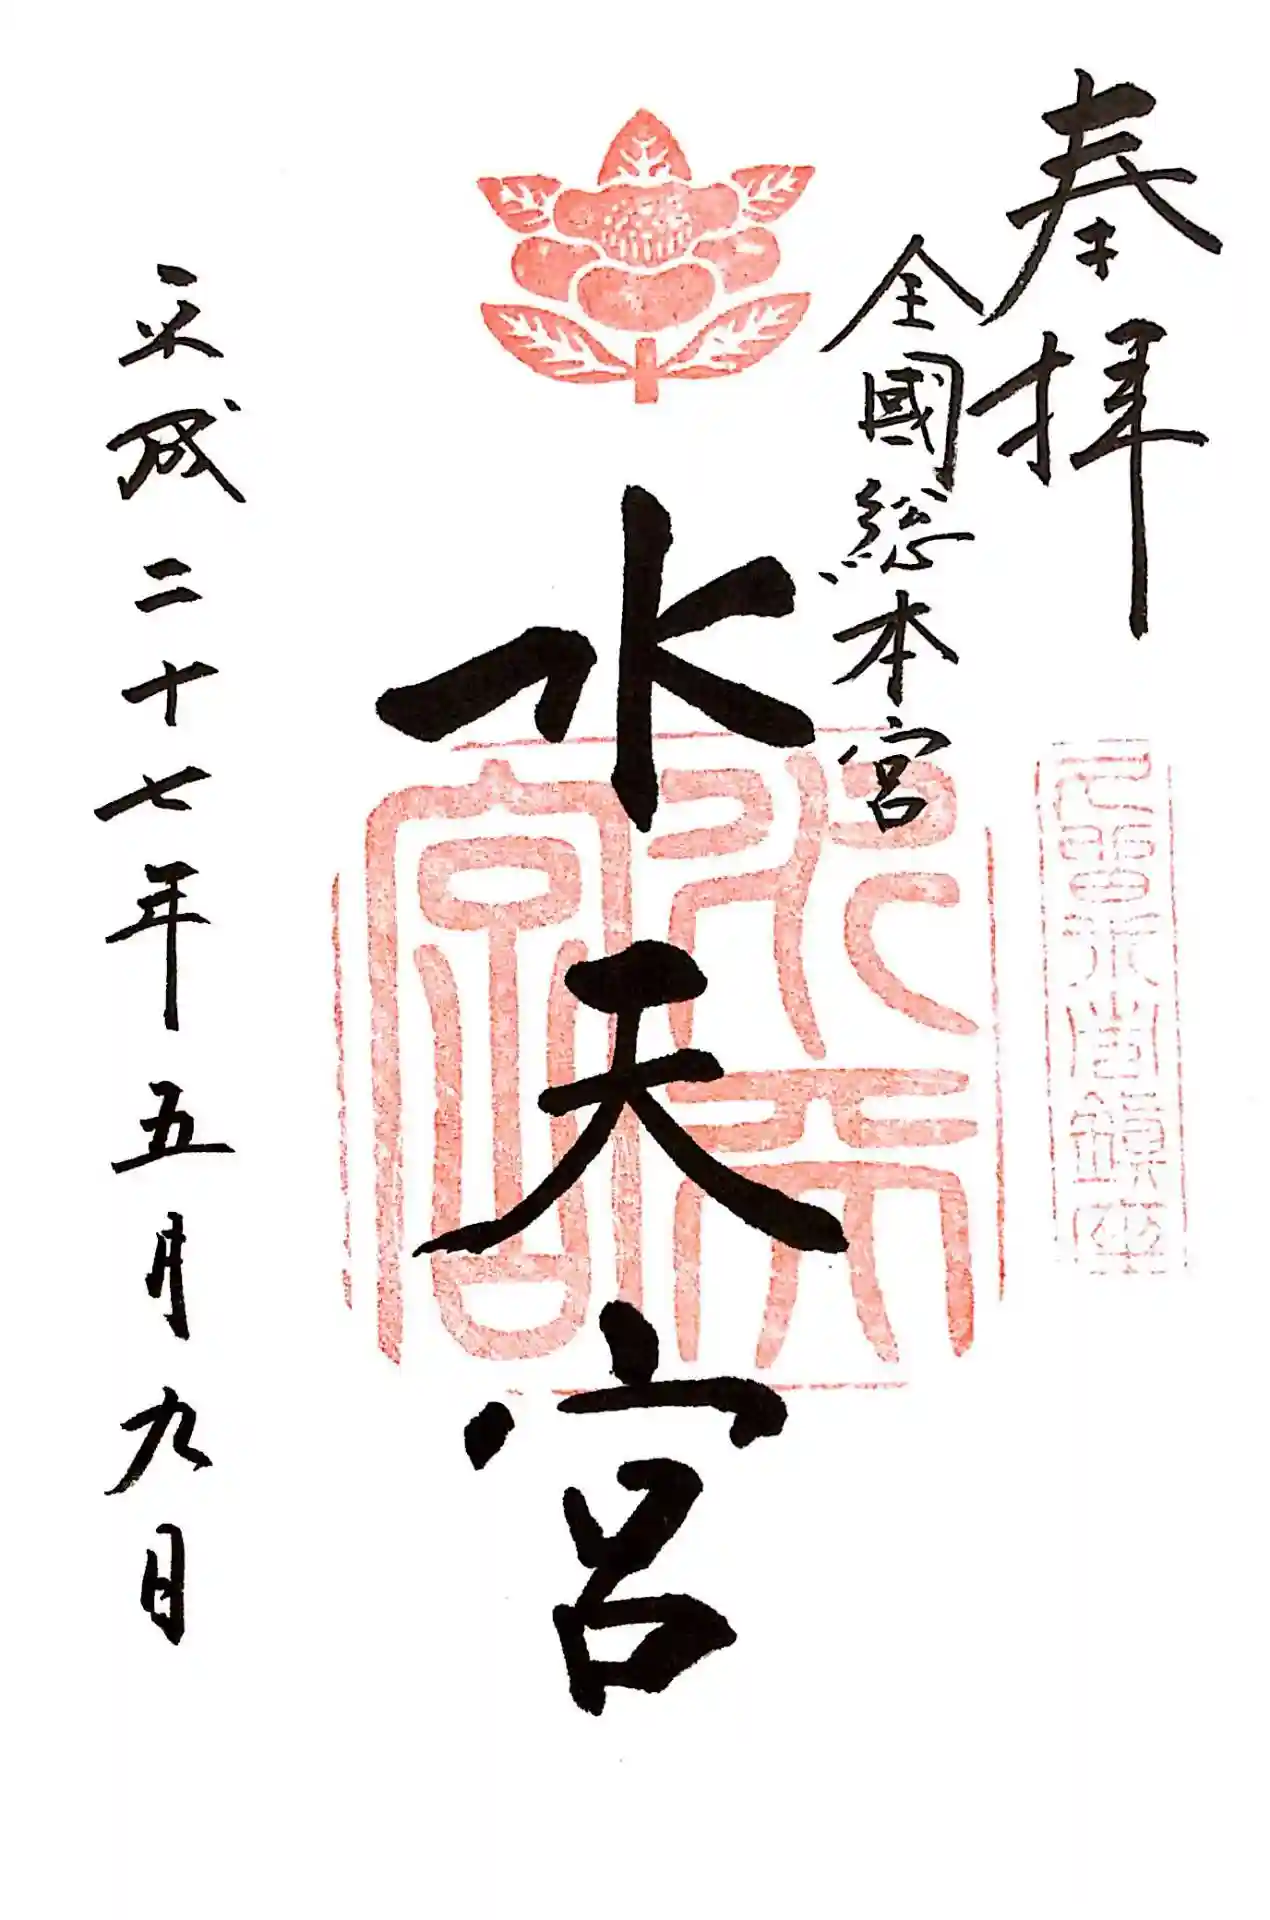 奉拝
全國総本宮
水天宮
平成二十七年五月九日